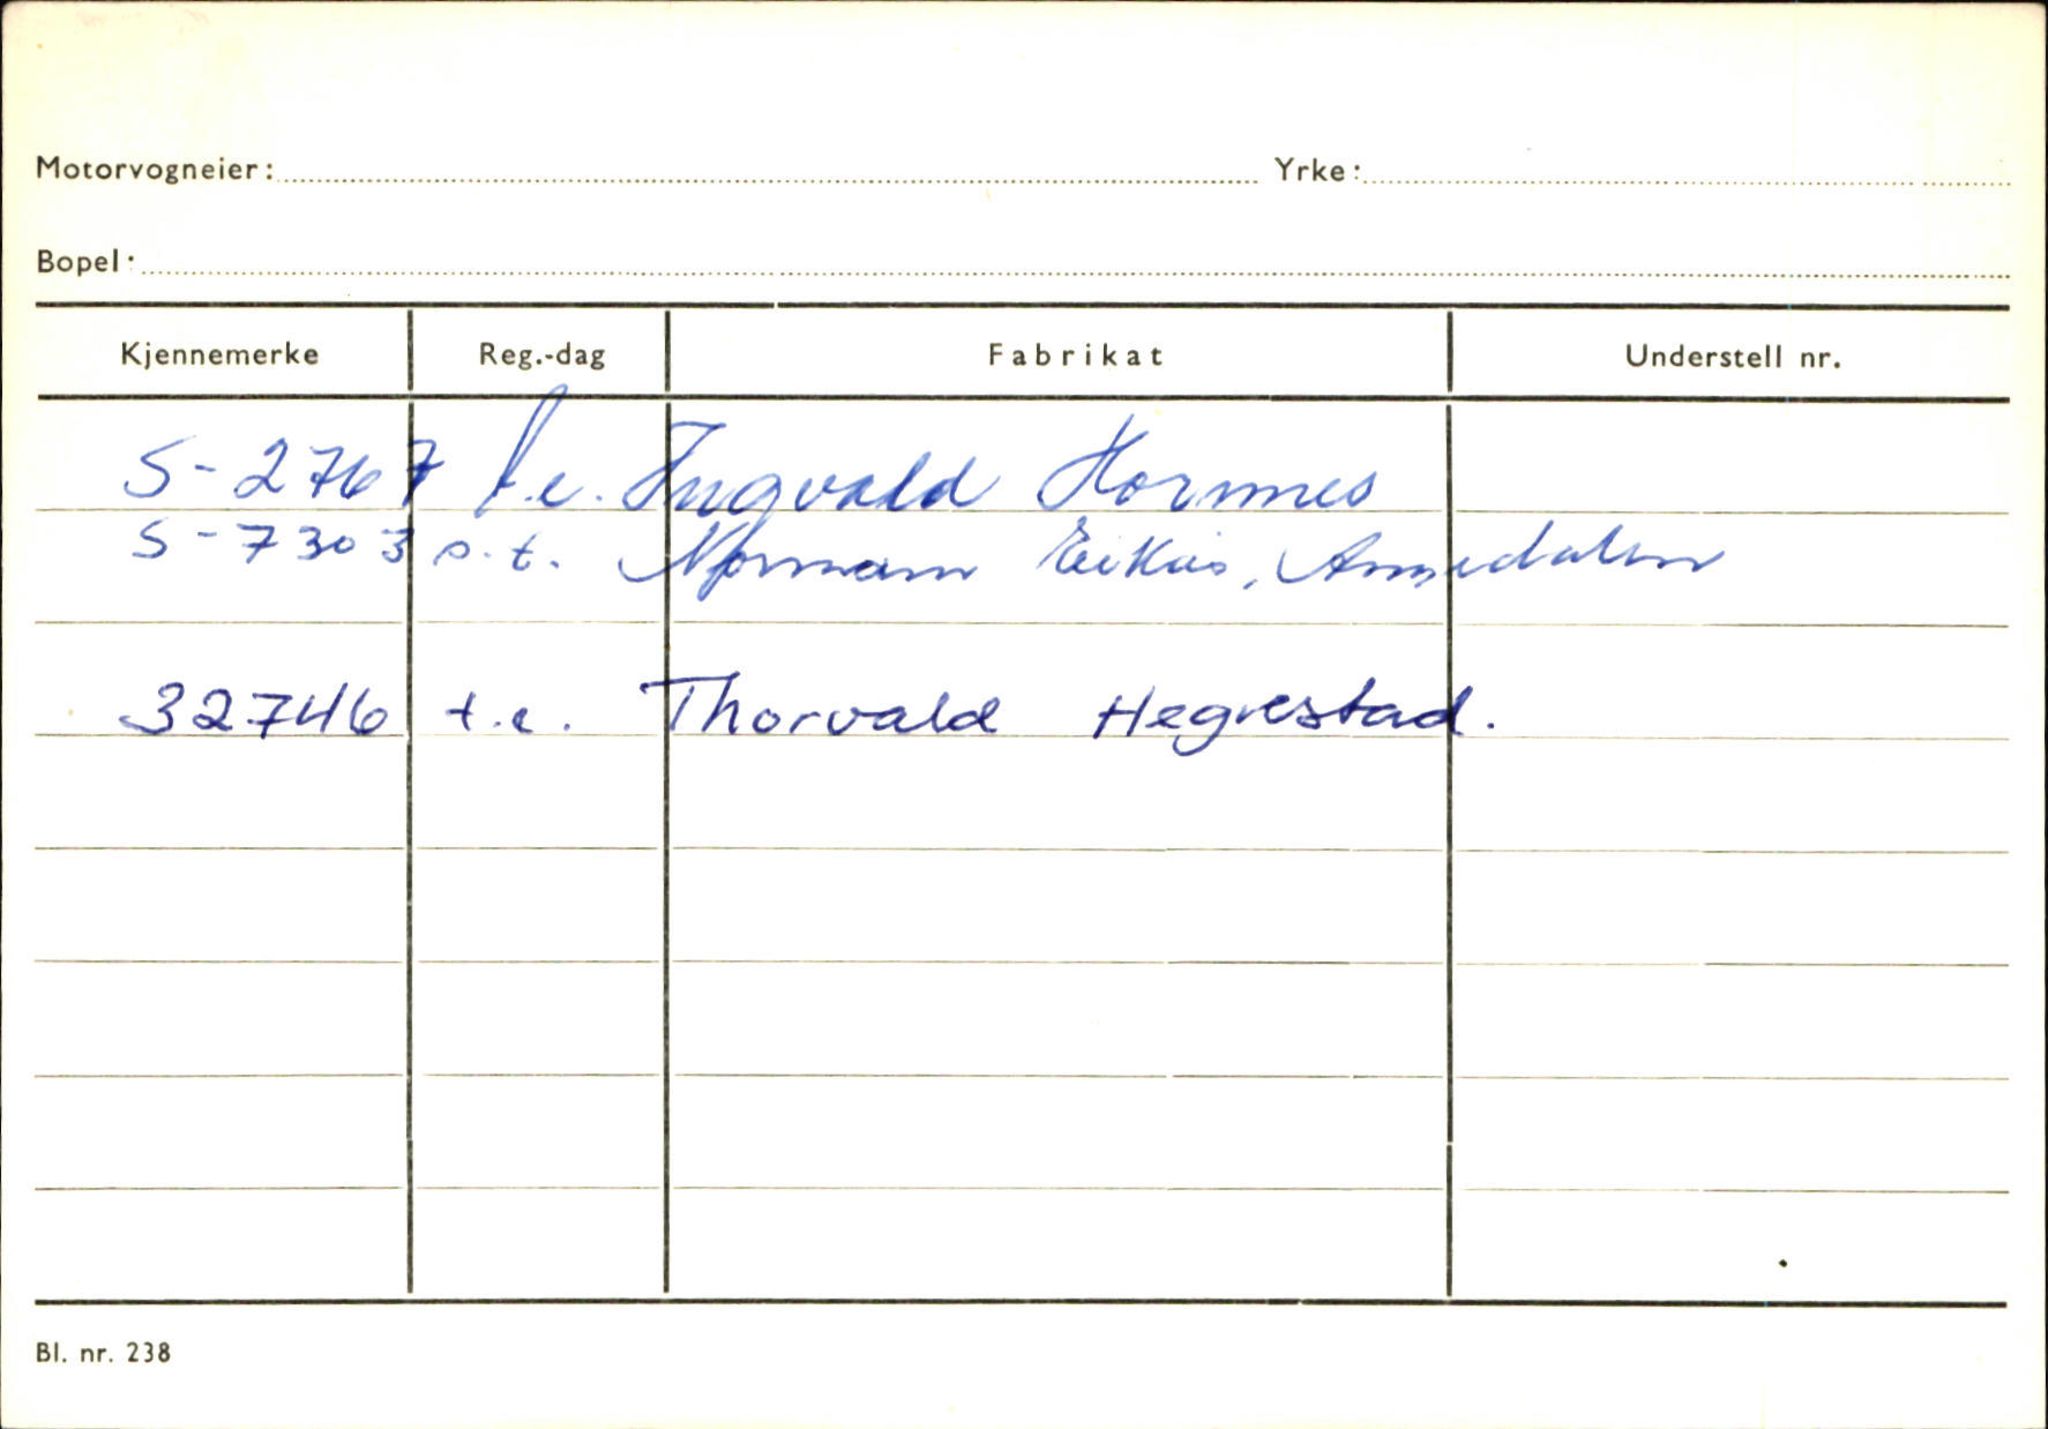 Motorvogneier: Yrke:
Bopel:
Kjennemerke Reg.-dag Fabrikat Understell nr.
S-2767 t.e. Ingvald Hornnes
S-7303 s.t. Norman Eikås,
32746 t.e. Thorvald Hegrestad.
Bl. nr. 238